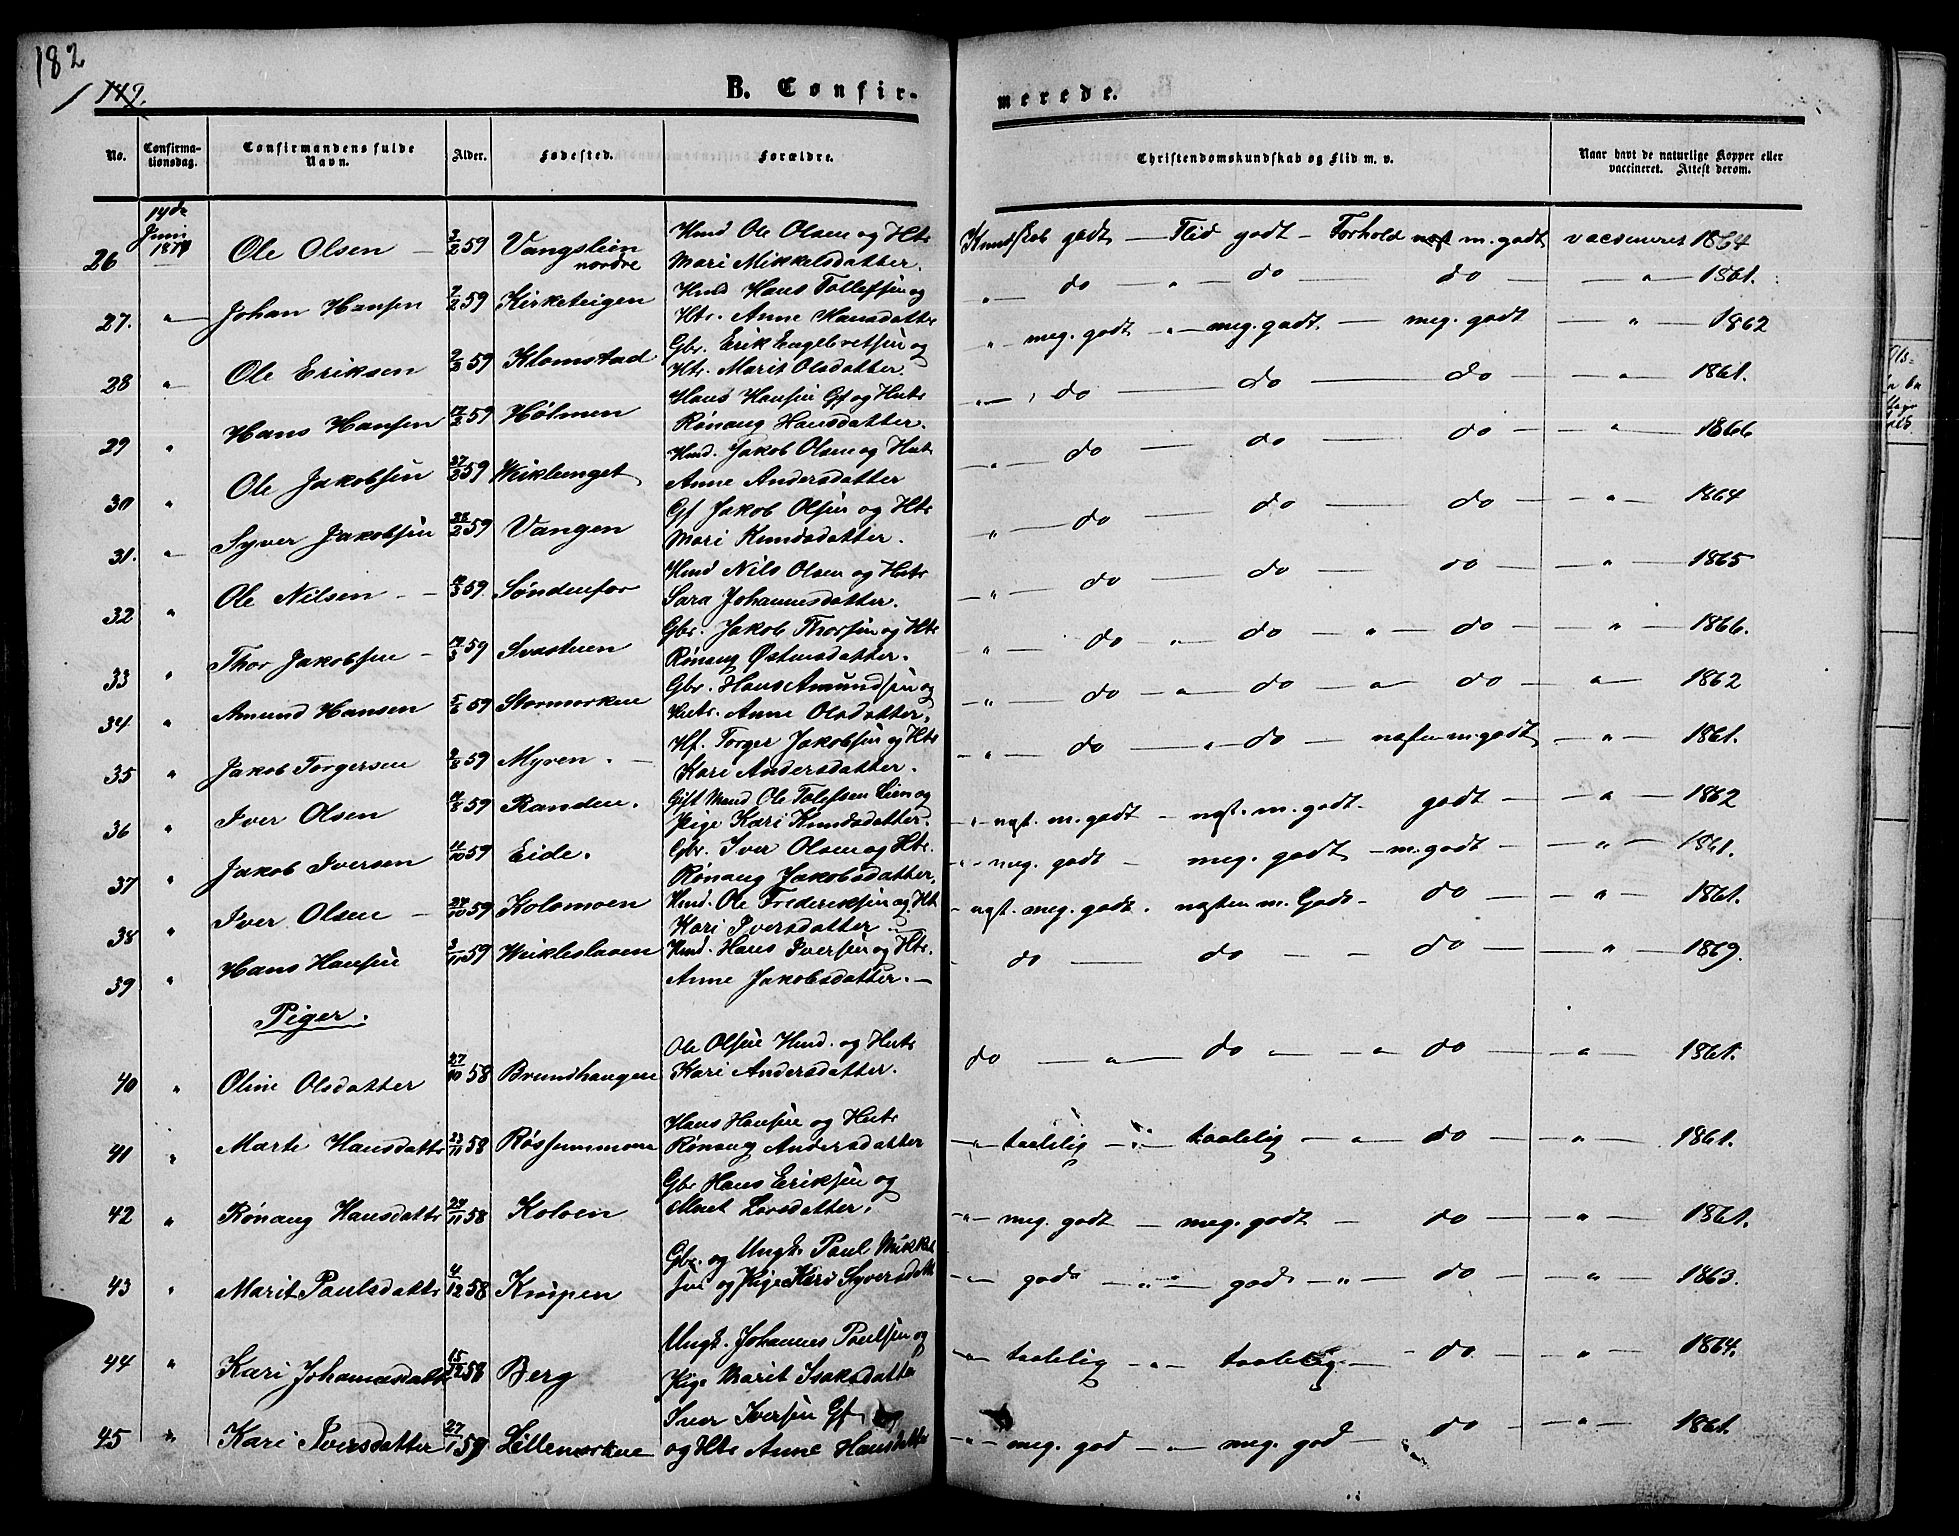 182
149.
B. Confir-
merede.
No.
Confirma-
tionsdag.
Confirmandens fulde
Navn.
Alder.
Fødested.
Forældre.
Christendomskundskab og Flid m. v.
Naar havt de naturlige Kopper eller
vaccineret. Attest derom.
14de
Juni
26 Ole Olsen — 59 Vangslien
nordre
Hmd Ole Olsen og Htr
Mari Mikkelsdatter.
Kundskab godt — Flid godt — Forhold m. godt vaccineret 1864
27. " Johan Hansen 2/2 59 Kirketeigen
Hmd Hans Tollefsen og
Htr. Anne Hansdatter
" do — " — do — do — " — 1861.
28 " Ole Eriksen 59 Klomstad
Gbr. Erik Engebretsen og
Htr. Marit Olsdatter.
" meg. godt " meg. godt — meg. godt — " — 1862
29 " Hans Hansen 59 Hølmen
Hans Hansen Gf og Hustr
Rønaug Hansdatter.
" do — do — do — " — 1861.
30 " Ole Jakobsen 59
Hmd. Jakob Olsen og Hustr
Anne Andersdatter
" do — do — do — " — 1866
31. " Syver Jakobsen 59 Vangen
Gf Jakob Olsen og Htr
Mari Knudsdatter.
" do — do — do — " — 1864
32 " Ole Nilsen — 59 Søndenfor
Hmd Nils Olsen og Hustr
Sara Johannesdatter.
" do — do — do — " — 1865
33 " Thor Jakobsen — 59 Svastuen
Gbr. Jakob Thorsen og Htr
Rønaug Østensdatter.
" do " do — " — do — " — 1866.
34 " Amund Hansen 59 Stormorken
Gbr. Hans Amundsen og
Hustr. Anne Olsdatter.
" do — " do — " do — " — 1862
35 " Jakob Torgersen 59 Myren. —
Hf. Torger Jakobsen og Htr
Kari Andersdatter.
" do — " do — næsten m. godt — " — 1861.
36 " Iver Olsen 59 Randen.
Gift Mand Ole Tolefsen Lien og
Pige Kari Knudsdatter.
" næst. m. godt — næst. m. godt. godt — " — 1862
37 " Jakob Iversen 11/10 59 Eide.
Gbr. Iver Olsen og Htr.
Rønaug Jakobsdatter.
" meg. godt — meg. godt — m. godt — " — 1861.
38 " Iver Olsen — 24/10 59 Kolomoen
Hmd. Ole Frederiksen og Ht
Kari Iversdatter.
næst. meg. godt. næsten m. Godt — do — " — 1861.
39 " Hans Hansen 3/11 59
Hmd. Hans Iversen og Htr.
Anne Jakobsdatter. —
do — do — do — " — 1869.
Piger.
40 " Oline Olsdatter 27/10 58 Brundhaugen
Ole Olsen Hmd. og Hustr
Kari Andersdatter.
do — " — do — " do — " — 1861.
41 " Marte Hansdattr 23/11 58 Røssummoen
Hans Hansen og Hustr
Rønaug Andersdatter
" taalelig — " taalelig — " — do — " — 1861.
42 " Rønaug Hansdattr 24/11 58 Kolven
Gbr Hans Eriksen og
Marit Larsdatter.
" meg. godt — meg. godt — do — " — 1861.
43 " Marit Paulsdattr 4/12 58 Knipen
Gbr. og Ungk. Paul Mikkel
sen og Pige Kari Syversdatt
" godt — " godt — " — do — " — 1863.
44 " Kari Johannesdatt 15/12 58 Berg
Ungk. Johannes Paulsen og
Pige Marit Isaksdatter
" taalelig — " — taalelig. — do — " — 1864.
45 " Kari Iversdatter 27/1 59 Lillemorken
Iver Iversen Gf
og Htr Anne Hansdatter
" meg. god — " — meg. god — do — " — 1861.